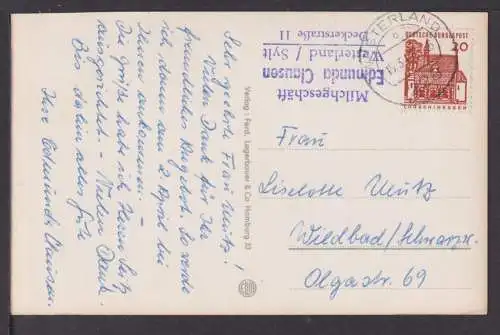 Sehr geehrte Frau Ueitz!
Vielen Dank für Ihr
freundliches Angebot. So werde
ich dann am 2 April bei
Ihnen ankommen.
Die Grüße habe ich Herrn Seitz
ausgerichtet – Vielen Dank.
Bis dahin alles Gute
Ihre Edmunda Clausen.
Verlag: Ferd. Lagerbauer & Co Hamburg 33
Milchgeschäft
Edmunda Clausen
Westerland / Sylt
Deckerstraße 11
WESTERLAND
DEUTSCHE BUNDESPOST
20
LORSCH/HESSEN
Frau
Liselotte Ueitz
Wildbad/Schwarzw.
Olgastr. 69